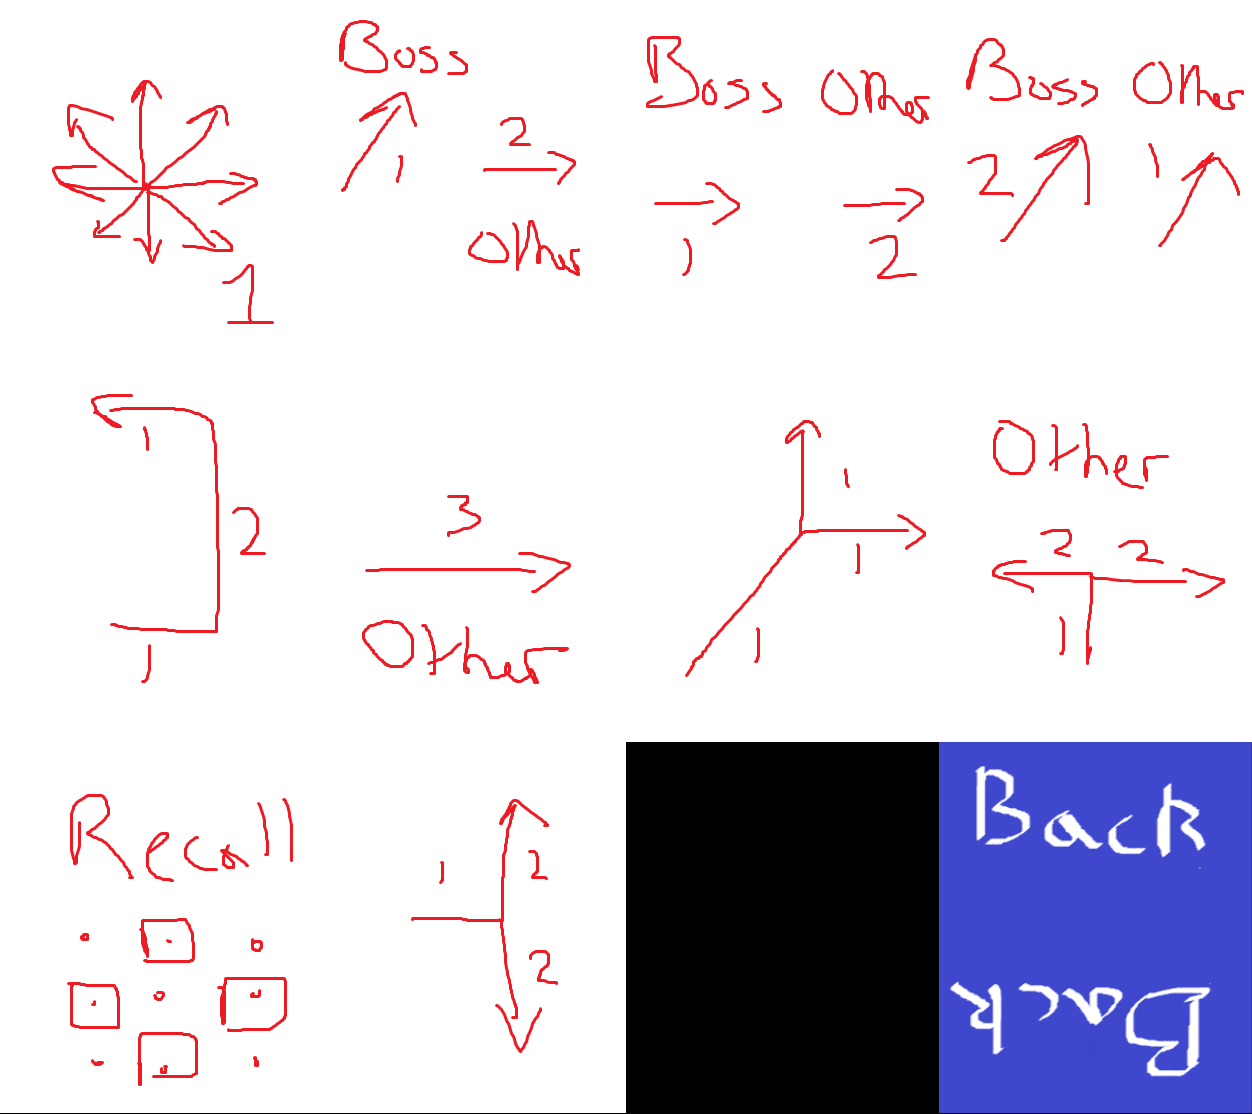 Boss
1
2
Other
1
Boss Other
1
2
Boss Other
2
1
1
2
1
3
Other
1
1
1
Other
2 2
1
Recall
1
2
2
Back
Back